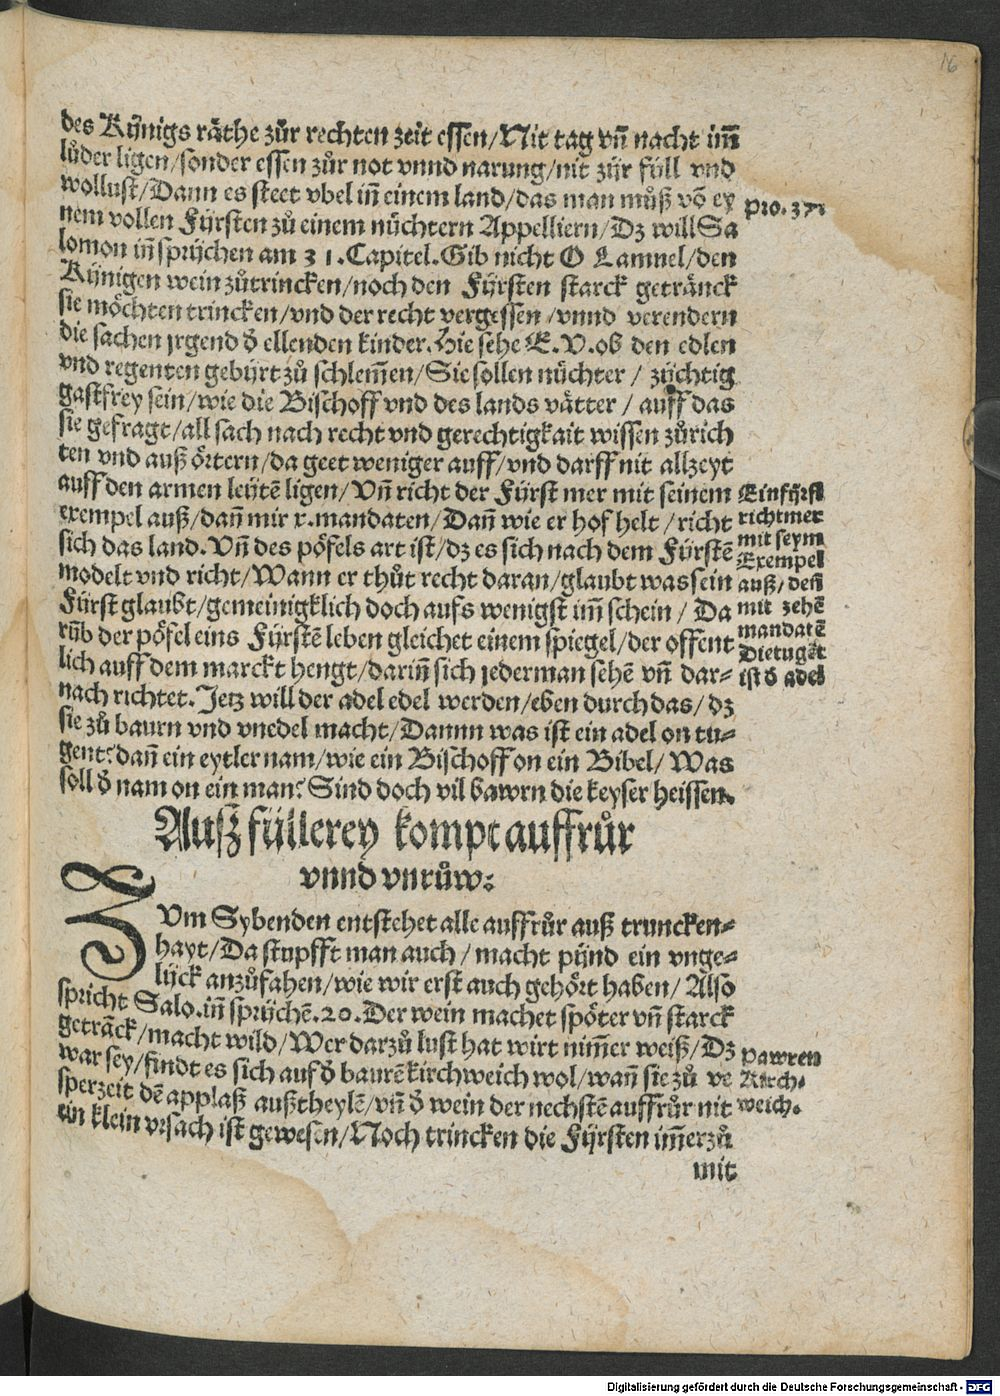 16
des Kűnigs räthe zůr rechten zeit essen/Nit tag vn̄ nacht im̄
lůder ligen/sonder essen zůr not vnnd narung/nit zůr füll vnd
wollust/Dann es steet vbel in̄ einem land/das man můß vō ey
nem vollen Fürsten zů einem nüchtern Appelliern/Dz will Sa
lomon in̄ sprüchen am 31. Capitel. Gib nicht O Lamuel/den
Künigen wein zůtrincken/noch den Fürsten starck getränck
sie möchten trincken/vnd der recht vergessen/vnnd verendern
die sachen yrgend d̄ ellenden kinder. Hie sehe E.V. ob den edlen
vnd regenten gebürt zů schlem̄en/Sie sollen nüchter/ züchtig
gastfrey sein/wie die Bischoff vnd des lands vätter/ auff das
sie gefragt/all sach nach recht vnd gerechtigkait wissen zůrich
ten vnd auß örtern/da geet weniger auff/vnd darff nit allzeyt
auff den armen leütē ligen/Vn̄ richt der Fürst mer mit seinem
exempel auß/dan̄ mir x. mandaten/Dan̄ wie er hof helt/richt
sich das land. Vn̄ des pöfels art ist/dz es sich nach dem Fürstē
modelt vnd richt/Wann er thůt recht daran/glaubt was sein
Fürst glaubt/gemeinigklich doch aufs wenigst im̄ schein/ Da
rūb der pöfel eins Fürstē leben gleichet einem spiegel/der offent
lich auff dem marckt hengt/darin̄ sich jederman sehē vn̄ dar-
nach richtet. Jetz will der adel edel werden/eben durch das/ dz
sie zů baurn vnd vnedel macht/Dannn was ist ein adel on tu-
gent? dan̄ ein eytler nam/wie ein Bischoff on ein Bibel/ Was
soll d̄ nam on ein man? Sind doch vil bawrn die keyser heissen.
Pro. 37.
Ein fürst
richt mer
mit seym
Exempel
auß/den̄
mit zehē
mandatē
Die tugēt
ist d̄ adel
Ausz füllerey kompt auffrůr
vnnd vnrůw:
ZVm Sybenden entstehet alle auffrůr auß truncken-
hayt/Da stupfft man auch/ macht pünd ein vnge-
lück anzůfahen/wie wir erst auch gehört haben/ Also
spricht Salo. in̄ sprüchē. 20. Der wein machet spöter vn̄ starck
geträck/macht wild/Wer darzů lust hat wirt nim̄er weiß/Dz
war sey/findt es sich auf d̄ baurē kirchweich wol/wan̄ sie zů ve
sperzeit dē applaß außtheylē/vn̄ d̄ wein der nechstē auffrůr nit
ein klein vrsach ist gewesen/Noch trincken die Fürsten im̄erzů
pawren
Kirch-
weich.
mit
Digitalisierung gefördert durch die Deutsche Forschungsgemeinschaft - DFG